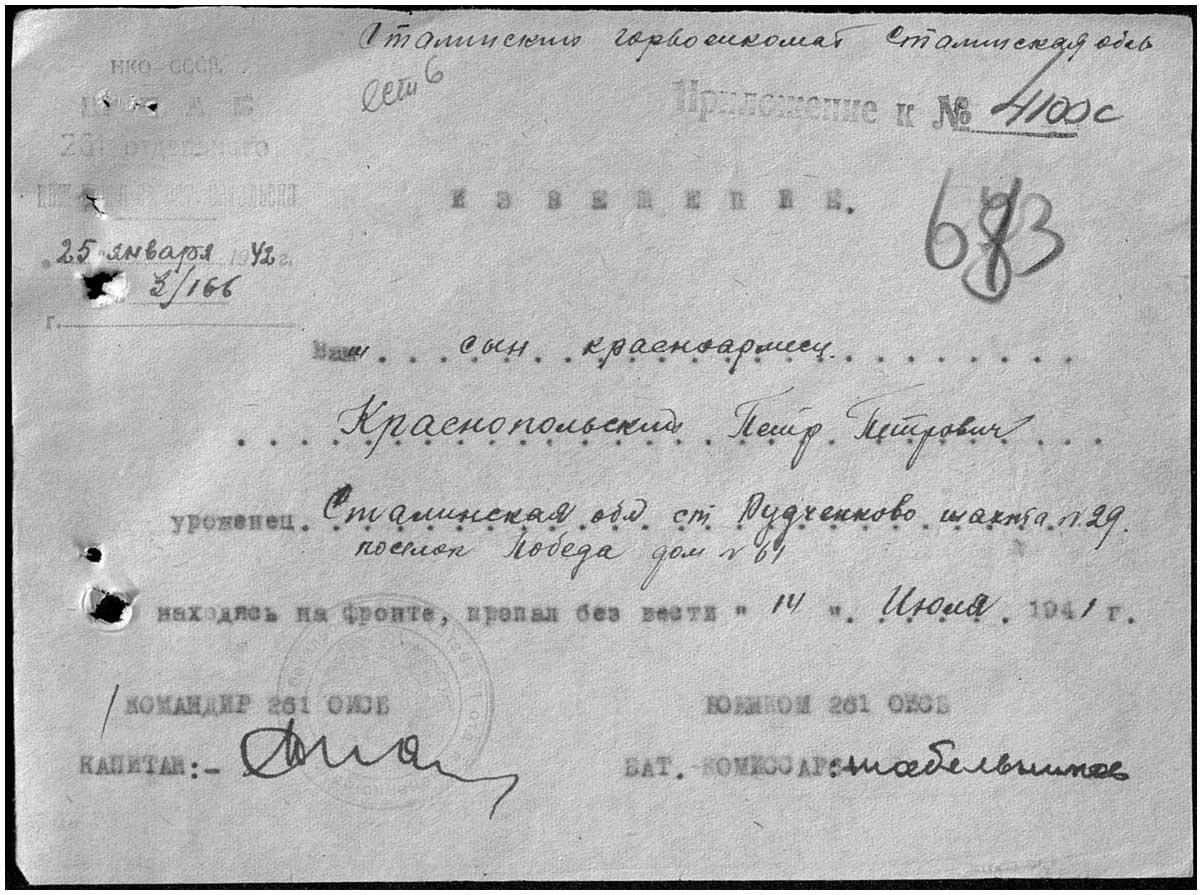 Сталинский горвоенкомат Сталинская обл
есть 6
НКО-СССР
ШТАБ
261 отдельного
Приложение к № 4100с
ИЗВЕЩЕНИЕ.
"25" января 1942 г.
3/166
г.
Ваш сын красноармеец
Краснопольский Петр Петрович
уроженец Сталинская обл ст Рудченково шахта №29.
поселок Победа дом №61
находясь на фронте, пропал без вести " 14 ". Июля. 1941 г.
КОМАНДИР 261 ОИСБ
ВОЕНКОМ 261 ОИСБ
КАПИТАН:-
БАТ.-КОМИССАР: Шабельников